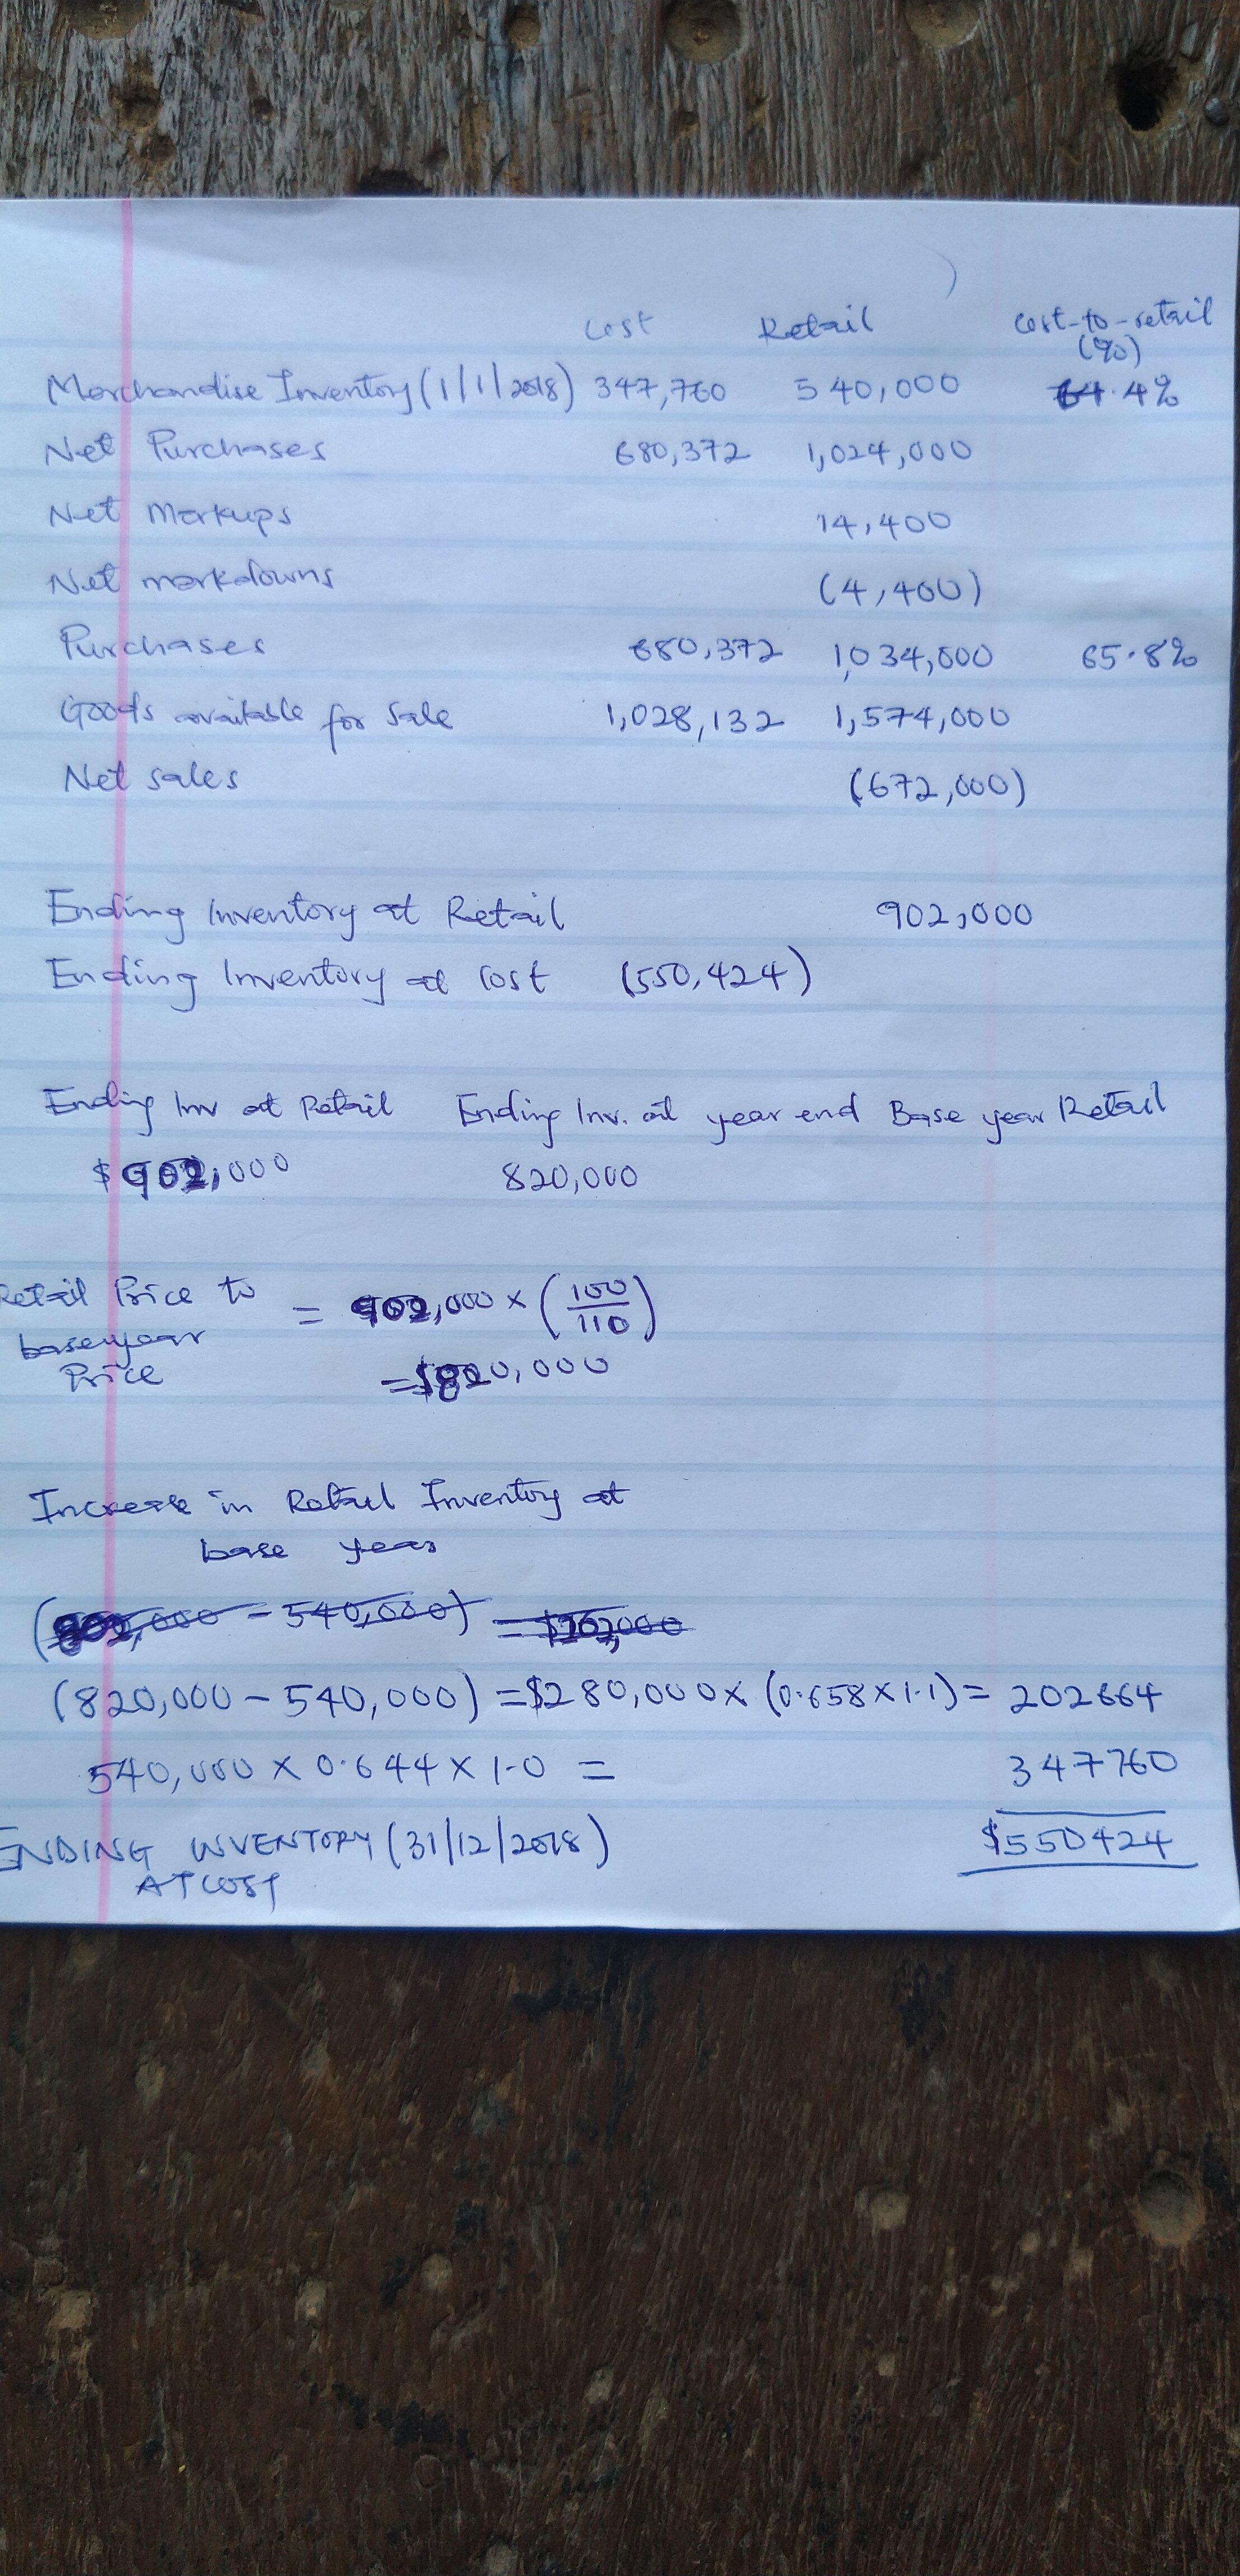 Cost Retail Cost-to-retail
(%)
Merchandise Inventory (1/1/2018) 347,760 540,000 64.4%
Net Purchases 680,372 1,024,000
Net Markups 14,400
Net markdowns (4,400)
Purchases 680,372 1,034,000 65.8%
Goods available for Sale 1,028,132 1,574,000
Net sales (672,000)
Ending Inventory at Retail 902,000
Ending Inventory at Cost (550,424)
Ending Inv at Retail Ending Inv. at year end Base year Retail
$902,000 820,000
Retail Price to
baseyear
Price
= 902,000 × (100/110)
= $820,000
Increase in Retail Inventory at
base year
(820,000 - 540,000) = $280,000 × (0.658 × 1.1) = 202664
540,000 × 0.644 × 1.0 = 347760
ENDING INVENTORY (31/12/2018) $550424
AT COST